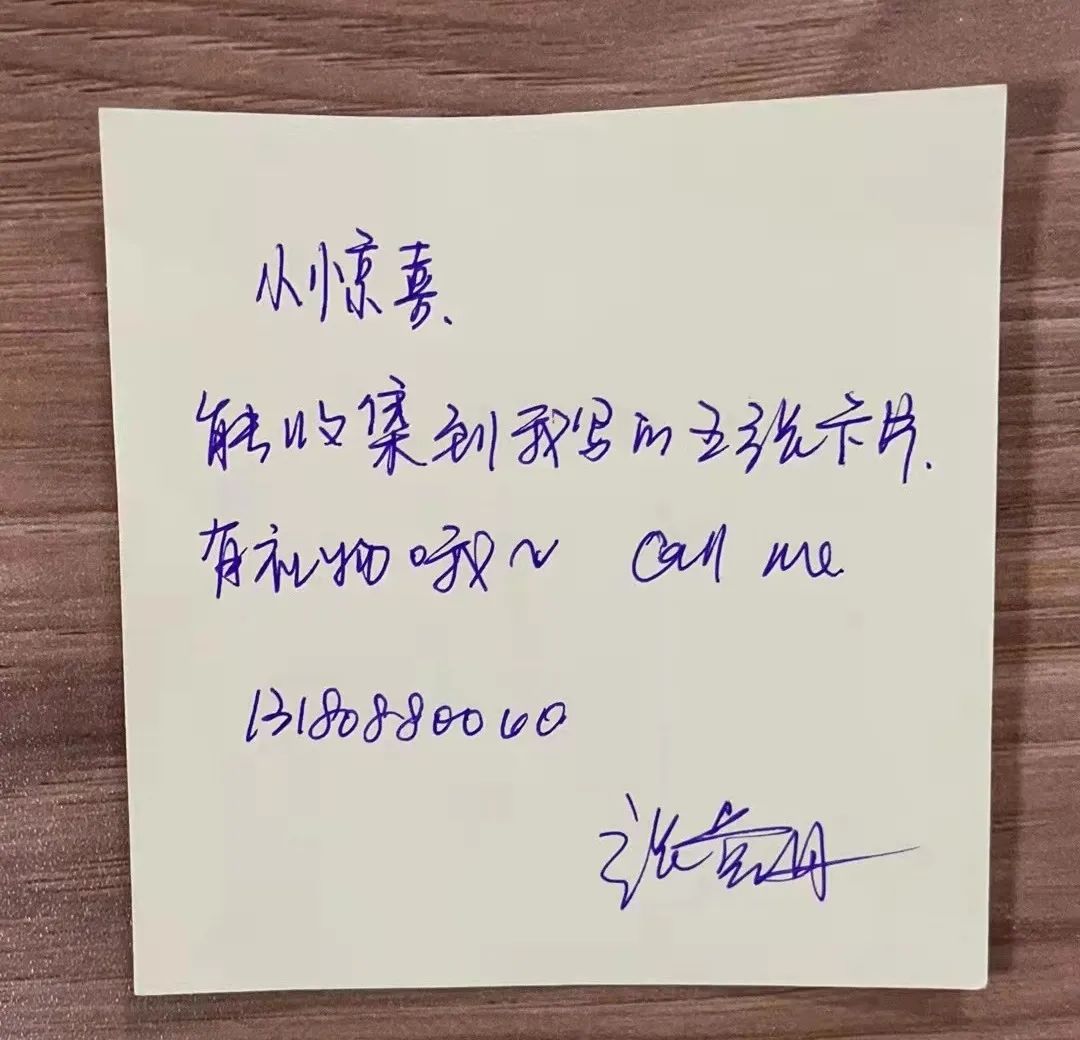 小惊喜.
能收集到我写的五张卡片.
有礼物哦~ Call me
13180880060
张